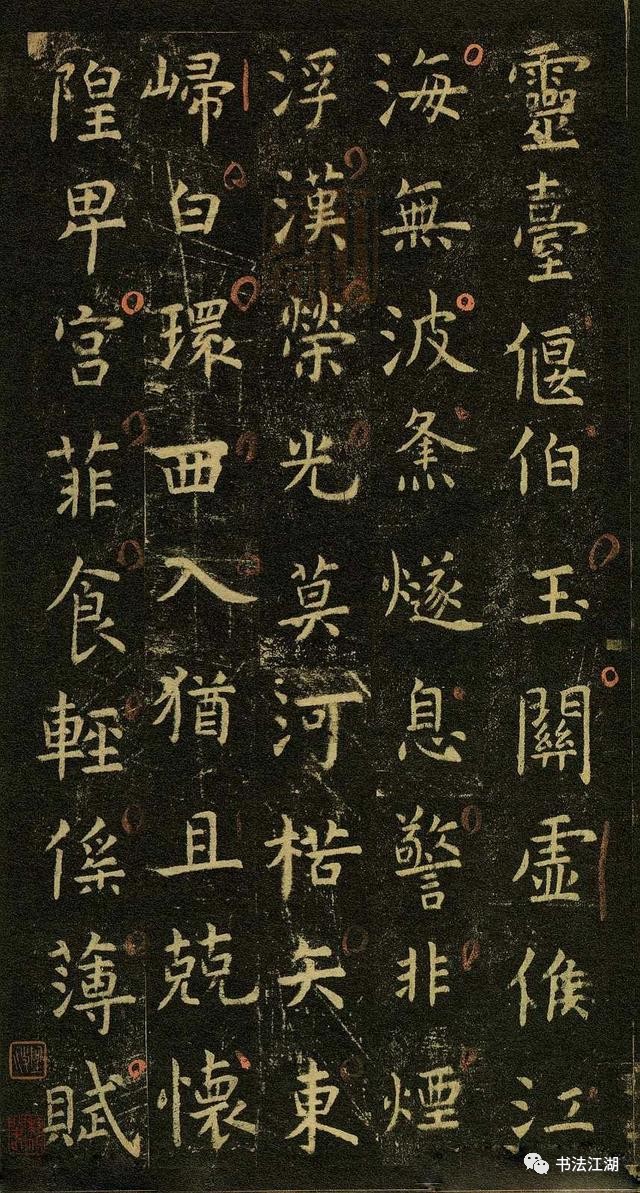 靈臺偃伯玉關虛候江
海無波㷭燧息警非煙
浮漢榮光莫河楛矢東
歸白環西入猶且兢懷
隍卑宮菲食輕傜薄賦
书法江湖